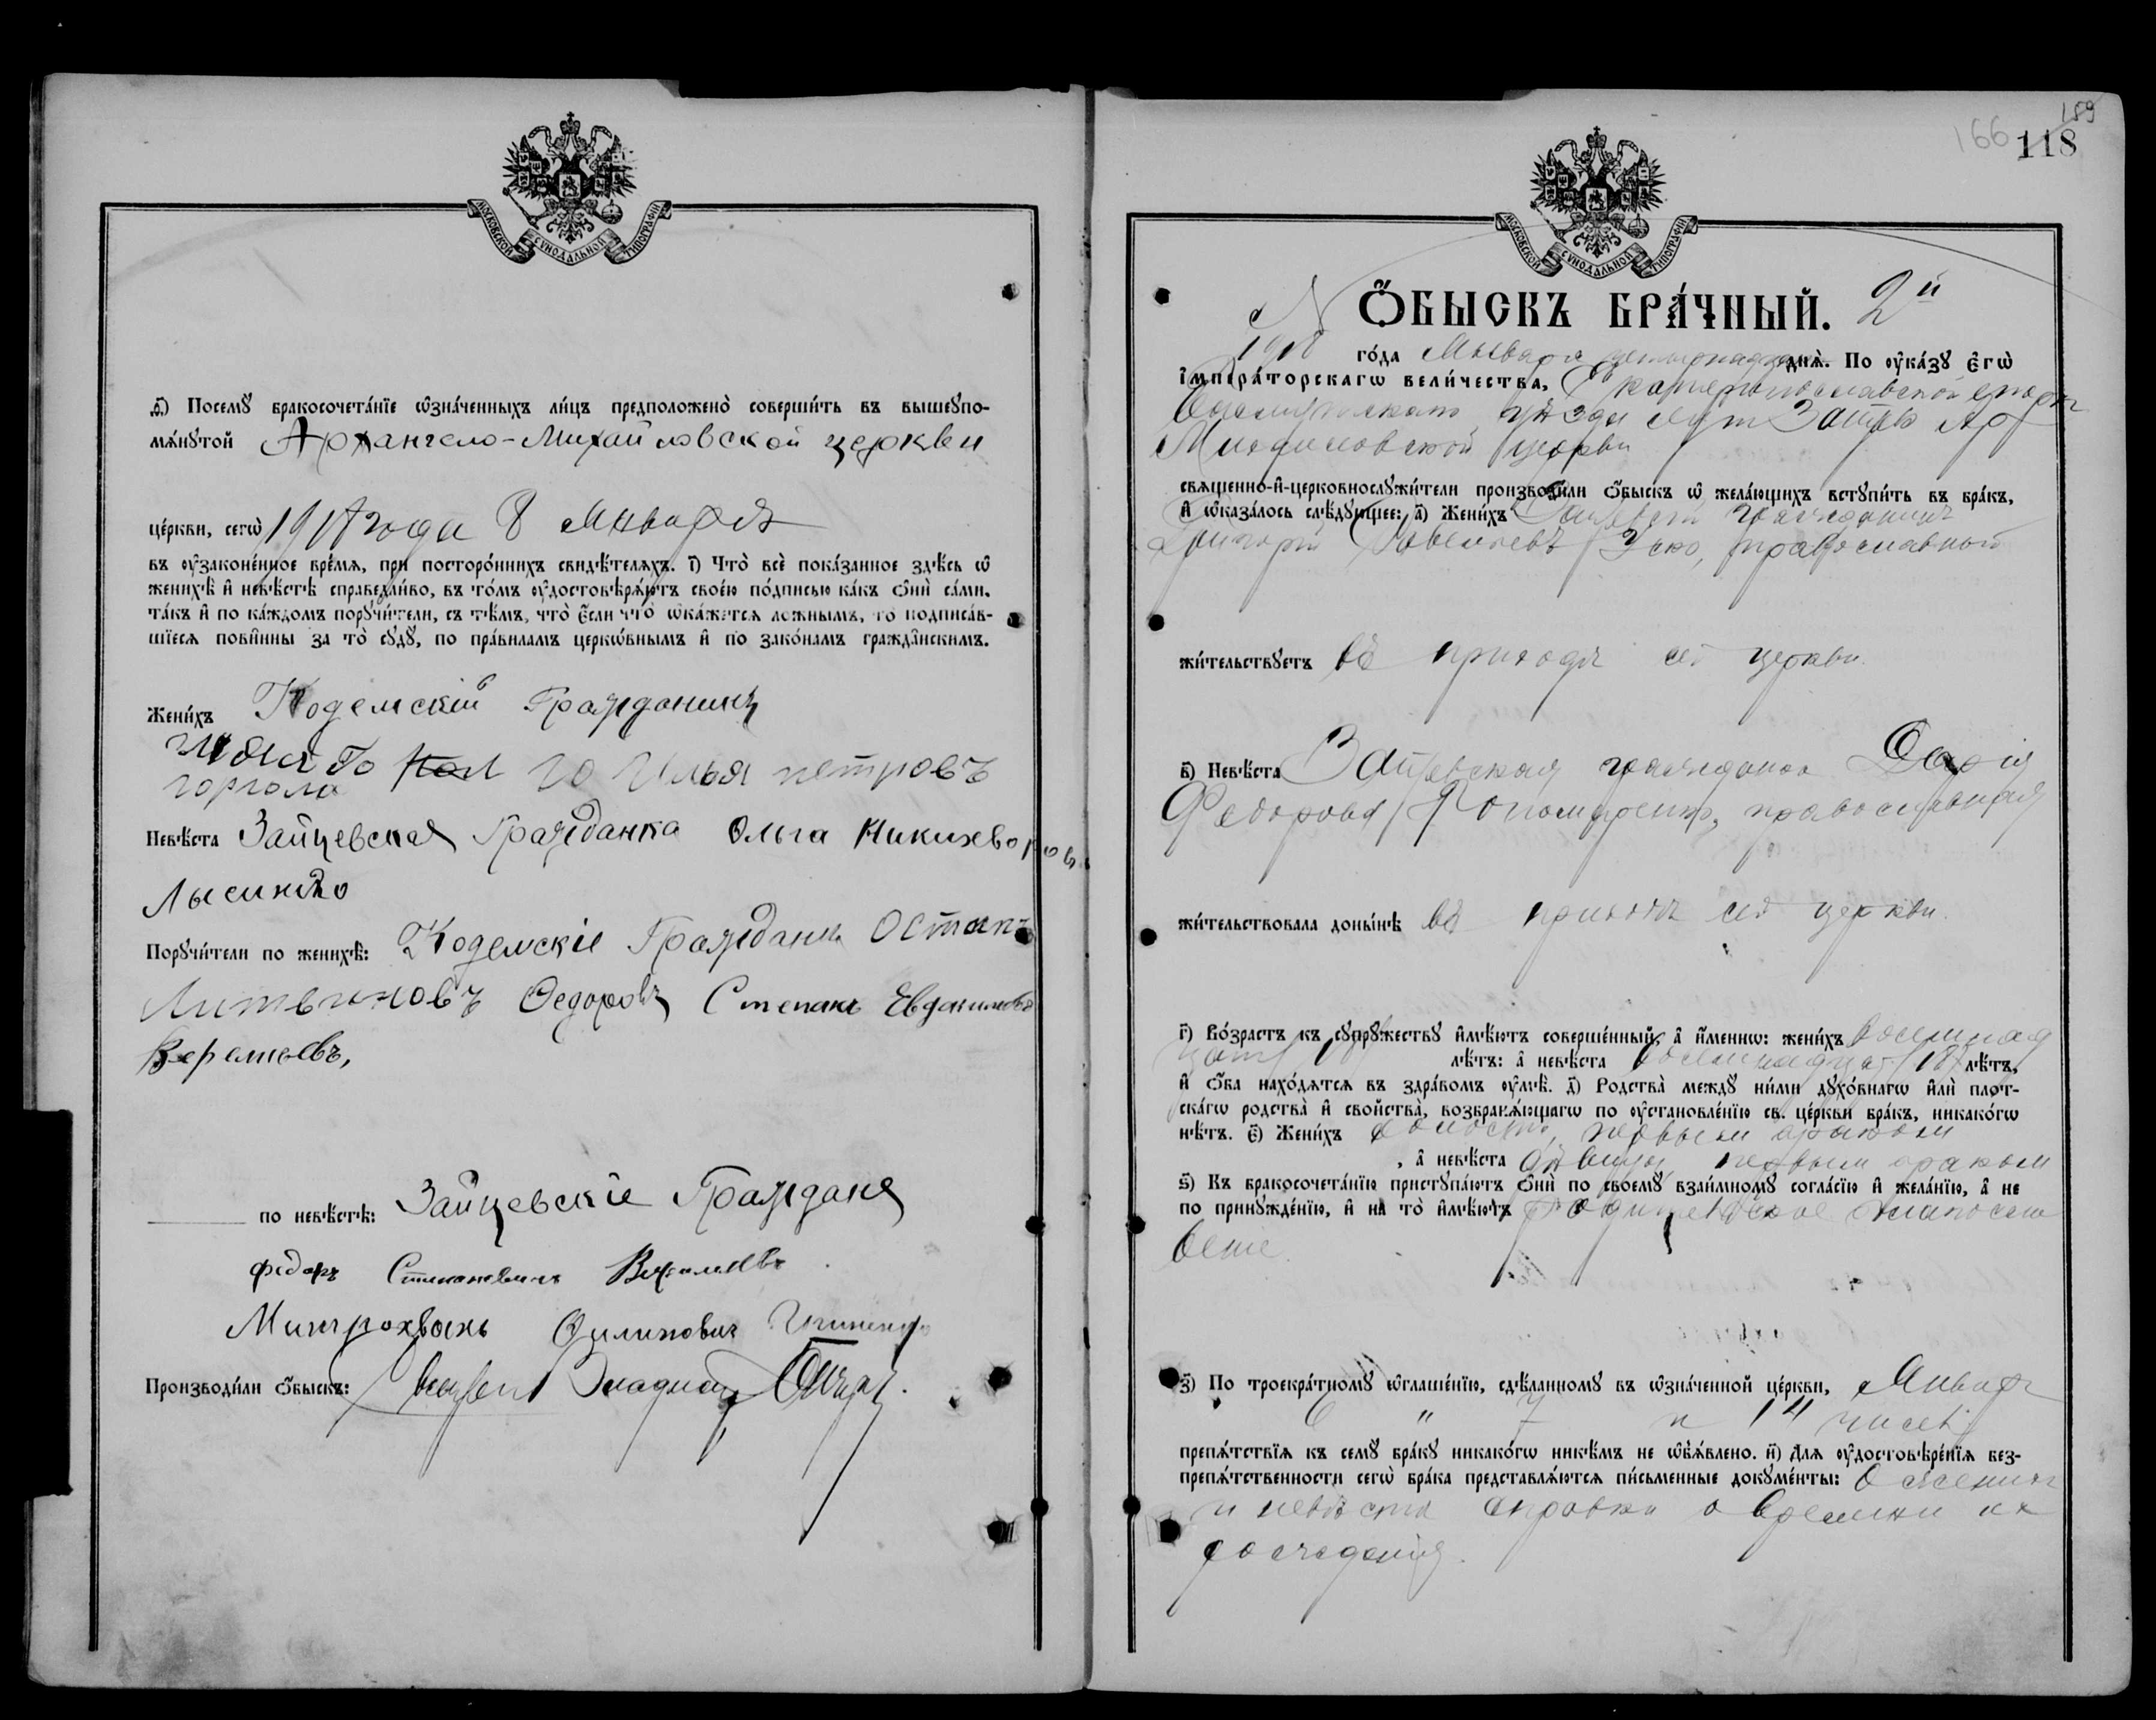 МОСКОВСКОЙ СѴНОДАЛЬНОЙ ТИПОГРАФІИ
ѳ҃) Посемꙋ бракосочета́нїе ѡ҆зна́ченныхъ ли́цъ предположено̀ соверши́ть въ вышеꙋпо-
мѧ́нꙋтой Архангело-Михайловской церкви
це́ркви, сегѡ̀ 1918 года 8 Января
въ ᲂу҆зако́ненное вре́мѧ, при посторо́ннихъ свидѣ́телѧхъ. і҃) Что̀ всѐ пока́занное здѣ́сь ѡ҆
женихѣ̀ и҆ невѣ́стѣ справедли́во, въ то́мъ ᲂу҆достовѣрѧ́ютъ свое́ю по́дписью ка́къ ѻ҆нѝ са́ми,
та́къ и҆ по ка́ждомъ порꙋчи́тели, съ тѣ́мъ, что̀ є҆́сли что̀ ѡ҆ка́жетсѧ ло́жнымъ, то̀ подписа́в-
шїесѧ пови́нны за то̀ сꙋдꙋ̀, по пра́виламъ церко́внымъ и҆ по зако́намъ гражда́нскимъ.
Жени́хъ Гражданинъ
го Илья петровъ
Невѣ́ста Зайцевская Гражданка Ольга
Порꙋчи́тели по женихѣ̀: Граждани Остапъ
Литвиновъ Федоровъ Степанъ
по невѣ́стѣ: Зайцевскіе Граждане
федоръ Степановичъ
Производи́ли ѻ҆́быскъ:
159
166 118
МОСКОВСКОЙ СѴНОДАЛЬНОЙ ТИПОГРАФІИ
Ѻ҆́БЫСКЪ БРА́ЧНЫЙ. 2й
1918 го́да Января днѧ̀. По ᲂу҆ка́зꙋ є҆гѡ̀
и҆мпера́торскагѡ вели́чества, Екатеринославской
уѣзда
Михайловской церкви
свѧще́нно-и҆-церковнослꙋжи́тели производи́ли ѻ҆́быскъ ѡ҆ жела́ющихъ встꙋпи́ть въ бра́къ,
и҆ ѡ҆каза́лось слѣ́дꙋющее: а҃) Жени́хъ гражданинъ
Григорій Савельевъ православный
жи́тельствꙋетъ въ приходѣ сей церкви.
в҃) Невѣ́ста Зайцевская гражданка Дарія
Федорова Пономаренко, православная
жи́тельствовала доны́нѣ въ приходѣ сей церкви.
г҃) Во́зрастъ къ сꙋпрꙋ́жествꙋ и҆мѣ́ютъ соверше́нный, а҆ и҆́менно: жени́хъ восемнад
цать лѣ́тъ: а҆ невѣ́ста восемнадцать /18/ лѣ́тъ,
и҆ ѻ҆́ба нахо́дѧтсѧ въ здра́вомъ ᲂу҆мѣ̀. д҃) Родства̀ междꙋ̀ ни́ми дꙋхо́внагѡ и҆лѝ плот-
ска́гѡ родства̀ и҆ сво́йства, возбранѧ́ющагѡ по ᲂу҆становле́нїю св. це́ркви бра́къ, никако́гѡ
нѣ́тъ. є҃) Жени́хъ холостъ, первымъ бракомъ
, а҆ невѣ́ста дѣвица, первымъ бракомъ
ѕ҃) Къ бракосочета́нїю пристꙋпа́ютъ ѻ҆нѝ по своемꙋ̀ взаи́мномꙋ согла́сїю и҆ жела́нїю, а҆ не
по принꙋжде́нїю, и҆ на то̀ и҆мѣ́ютъ родительское благосло
веніе.
з҃) По троекра́тномꙋ ѡ҆глаше́нїю, сдѣ́ланномꙋ въ ѡ҆зна́ченной це́ркви, Января
6 " 7 и 14 чиселъ
препѧ́тствїѧ къ семꙋ̀ бра́кꙋ никако́гѡ никѣ́мъ не ѡ҆б̾ѧ́влено. и҃) Длѧ̀ ᲂу҆достовѣре́нїѧ без-
препѧ́тственности сегѡ̀ бра́ка представлѧ́ютсѧ пи́сьменные докꙋме́нты: О женихѣ
и невѣстѣ справка о времени их
рожденія.